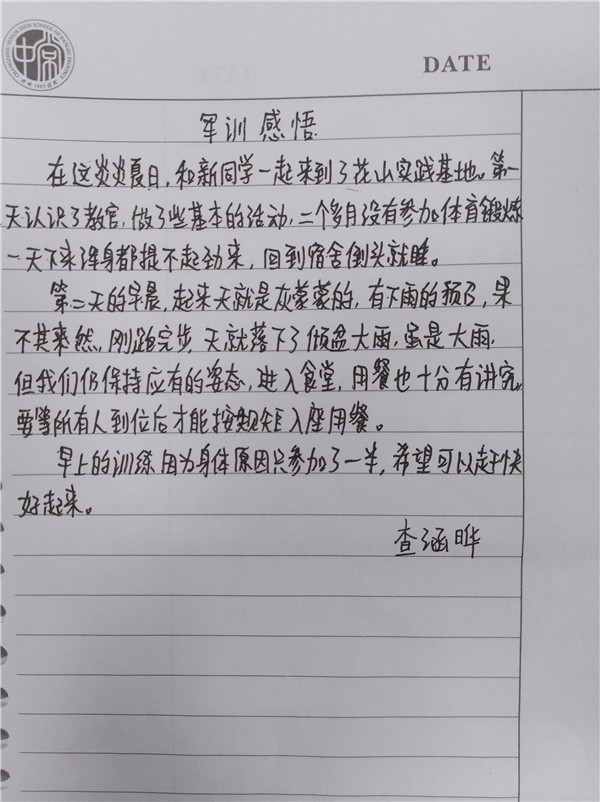 中常
DATE
军训感悟
在这炎炎夏日,和新同学一起来到了花山实践基地。第一
天认识了教官,做了些基本的活动,二个多月没有参加体育锻炼
一天下来浑身都提不起劲来,回到宿舍倒头就睡。
第二天的早晨,起来天就是灰蒙蒙的,有下雨的预兆,果
不其来然,刚跑完步,天就落下了倾盆大雨,虽是大雨,
但我们仍保持应有的姿态,进入食堂,用餐也十分有讲究,
要等所有人到位后才能按规矩入座用餐。
早上的训练因为身体原因只参加了一半,希望可以赶快
好起来。
查涵晔